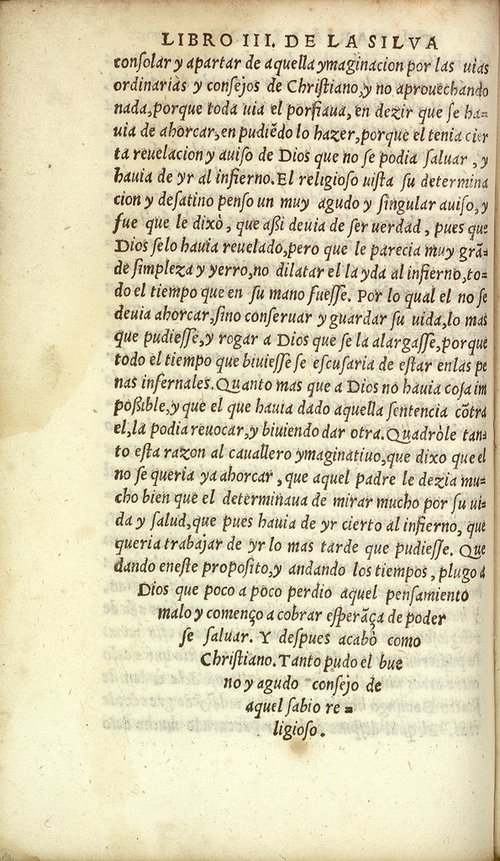 LIBRO III. DE LA SILVA
consolar y apartar de aquella ymaginacion por las uias
ordinarias y consejos de Christiano, y no aprouechando
nada, porque toda uia el porfiaua, en dezir que se ha=
uia de ahorcar, en pudiẽdo lo hazer, porque el tenia cier
ta reuelacion y auiso de Dios que no se podia saluar, y
hauia de yr al infierno. El religioso uista su determina
cion y desatino penso un muy agudo y singular auiso, y
fue que le dixò, que aßi deuia de ser uerdad, pues que
Dios selo hauia reuelado, pero que le parecia muy grã=
de simpleza y yerro, no dilatar el la yda al infierno, to=
do el tiempo que en su mano fuesse. Por lo qual el no se
deuia ahorcar, sino conseruar y guardar su uida, lo mas
que pudiesse, y rogar a Dios que se la alargasse, porque
todo el tiempo que biuiesse se escusaria de estar enlas pe
nas infernales. Quanto mas que a Dios no hauia cosa im
poßible, y que el que hauia dado aquella sentencia cõtra
el, la podia reuocar, y biuiendo dar otra. Quadròle tan=
to esta razon al cauallero ymaginatiuo, que dixo que el
no se queria ya ahorcar, que aquel padre le dezia mu=
cho bien que el determinaua de mirar mucho por su ui=
da y salud, que pues hauia de yr cierto al infierno, que
queria trabajar de yr lo mas tarde que pudiesse. Que
dando eneste proposito, y andando los tiempos, plugo a
Dios que poco a poco perdio aquel pensamiento
malo y començo a cobrar esperãça de poder
se saluar. Y despues acabò como
Christiano. Tanto pudo el bue
no y agudo consejo de
aquel sabio re=
ligioso.